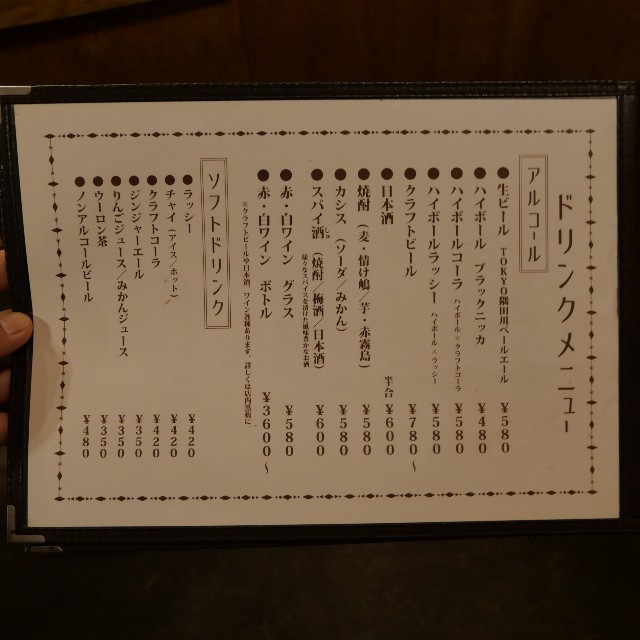 ドリンクメニュー
アルコール
●生ビール TOKYO隅田川ペールエール ¥580
●ハイボール ブラックニッカ ¥480
●ハイボールコーラ ハイボール×クラフトコーラ ¥580
●ハイボールラッシー ハイボール×ラッシー ¥580
●クラフトビール ¥780〜
●日本酒 半合 ¥600
●焼酎 (麦・情け嶋／芋・赤霧島) ¥580
●カシス (ソーダ／みかん) ¥580
●スパイ酒 (焼酎／梅酒／日本酒) ¥600
様々なスパイスを漬けた風味豊かなお酒
●赤・白ワイン グラス ¥580
●赤・白ワイン ボトル ¥3600〜
※クラフトビールや日本酒、ワイン各種あります。詳しくは店内黒板に。
ソフトドリンク
●ラッシー ¥420
●チャイ (アイス／ホット) ¥420
●クラフトコーラ ¥420
●ジンジャーエール ¥350
●りんごジュース／みかんジュース ¥350
●ウーロン茶 ¥350
●ノンアルコールビール ¥480